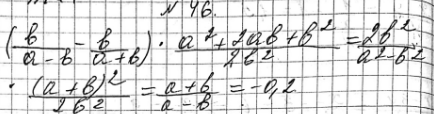 № 46.
(b/(a-b) - b/(a+b)) · (a²+2ab+b²)/(2b²) = 2b²/(a²-b²)
· (a+b)²/(2b²) = (a+b)/(a-b) = -0,2